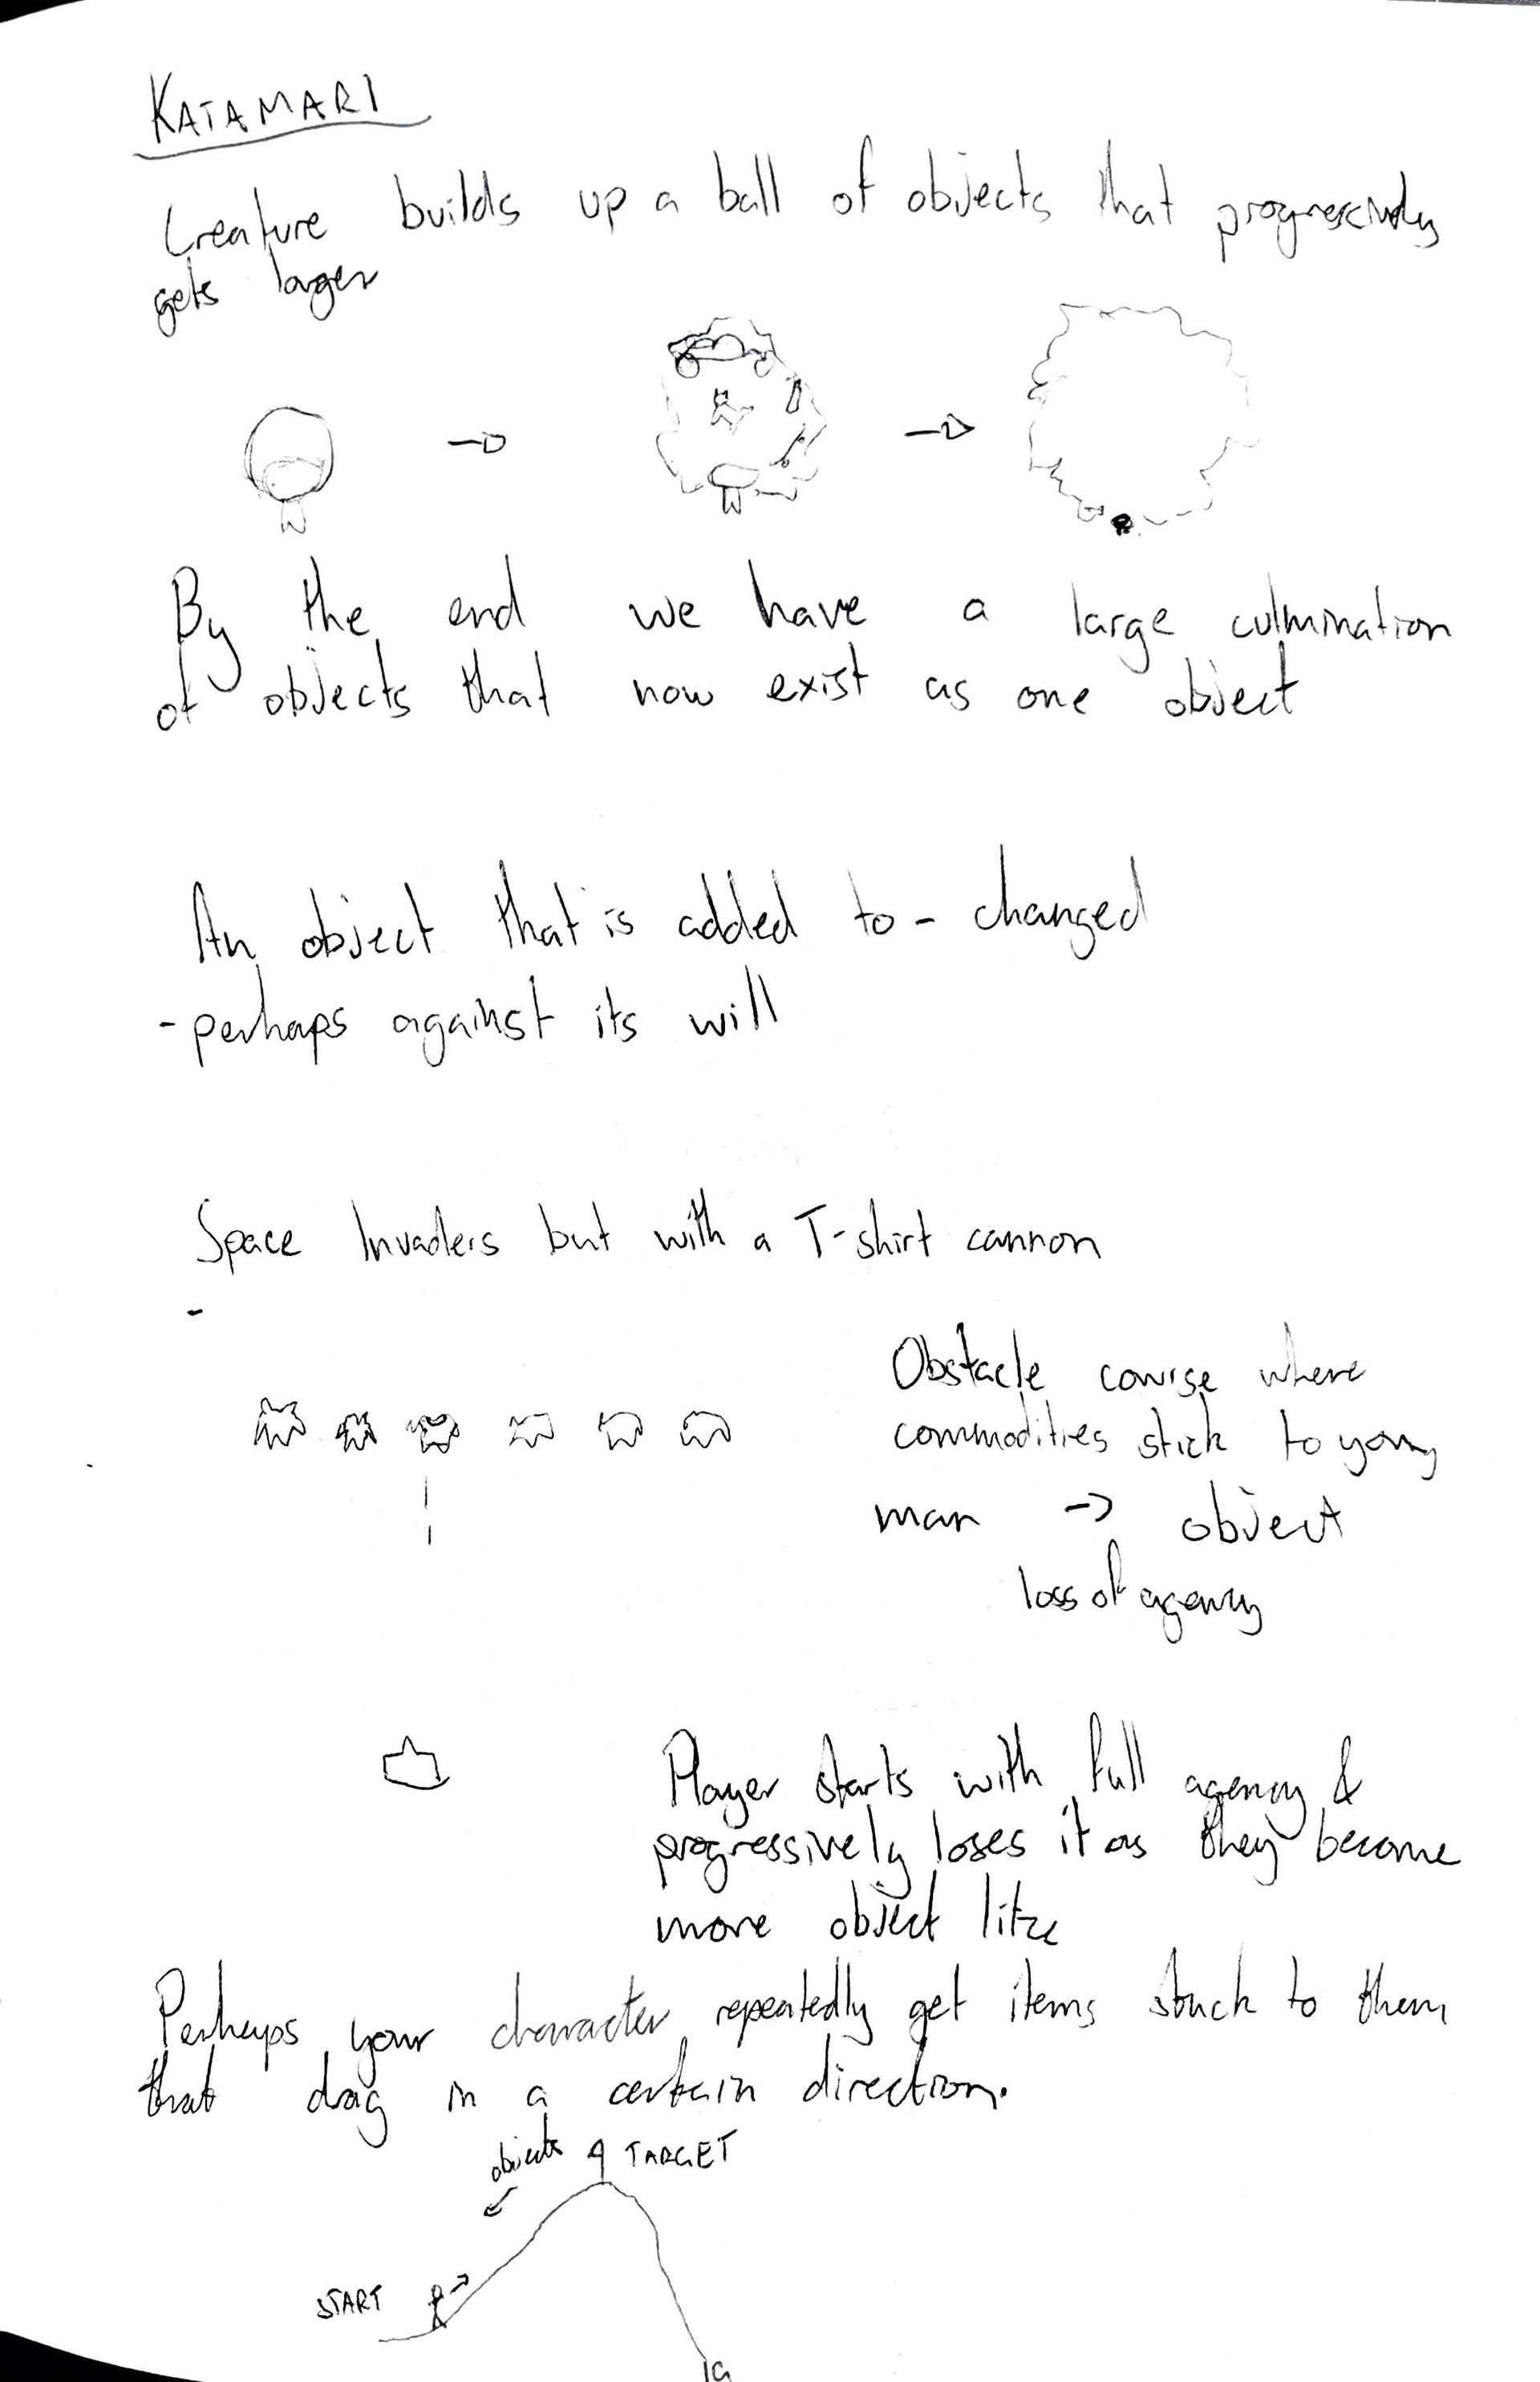 KATAMARI
Creature builds up a ball of objects that progressively
gets larger
By the end we have a large culmination
of objects that now exist as one object
An object that is added to - changed
- perhaps against its will
Space Invaders but with a T-shirt cannon
-
Obstacle course where
commodities stick to your
man -> object
loss of agency
Player starts with full agency &
progressively loses it as they become
more object like
Perhaps your character repeatedly get items stuck to them
that drag in a certain direction.
objects TARGET
START